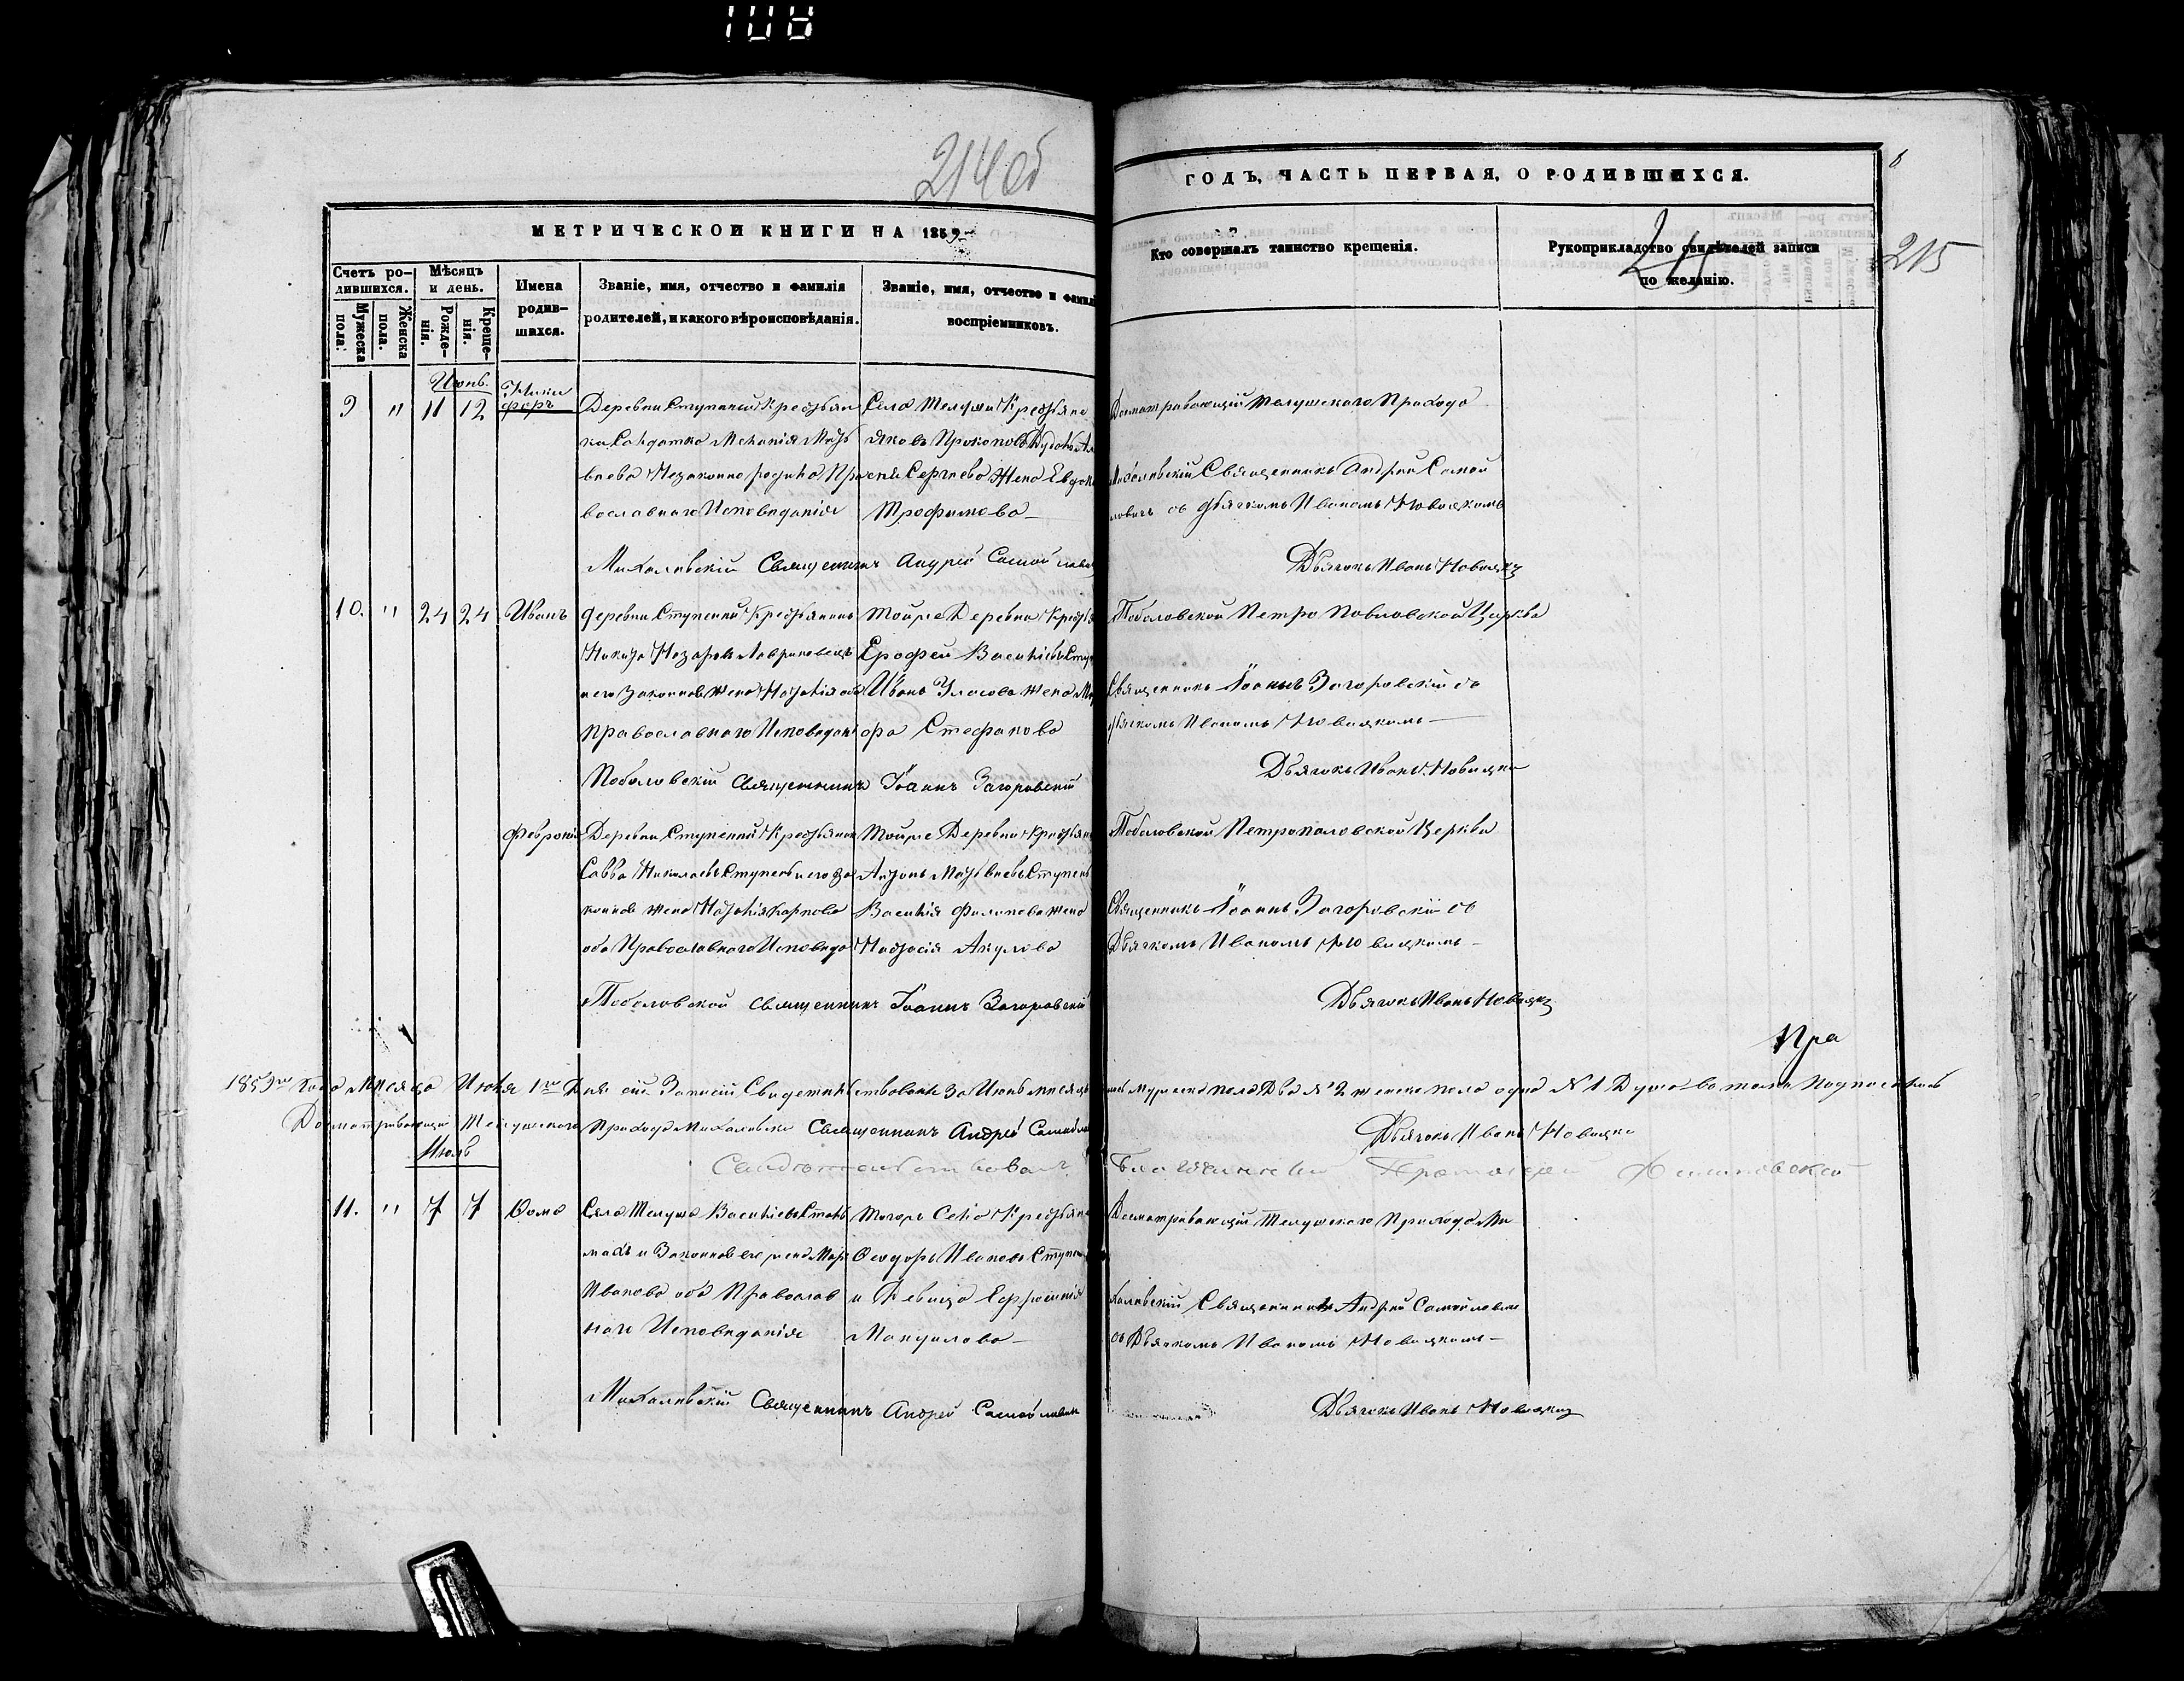 108
214 об
МЕТРИЧЕСКОЙ КНИГИ НА 1859
ГОДЪ, ЧАСТЬ ПЕРВАЯ, О РОДИВШИХСЯ.
215
Счетъ ро-
дившихся.
Мужеска пола.
Женска пола.
Мѣсяцъ
и день.
Рожде-
нія.
Креще-
нія.
Имена
родив-
шихся.
Званіе, имя, отчество и фамилія
родителей, и какого вѣроисповѣданія.
Званіе, имя, отчество и фамил
воспріемниковъ.
Кто совершалъ таинство крещенія.
Рукоприкладство свидѣтелей записи
по желанію.
Июнь.
9 " 11 12
Ники
форъ
Деревни Ступеней Крестьян
ка Солдатка Мелания Мат
веева Незаконно родила Пра
вославнаго Исповеданія
Села Телуши Крестьяне
Яковъ Прокоповъ
Сергиева Жена Евдок
Трофимова
Досматривающий Телушскаго Прихода
Михалевскій Священникъ Андрей Самой
ловичъ съ Дьячкомъ Иваномъ Новицкимъ
Михалевскій Священникъ Андрей Самойлович
Дьячокъ Иванъ Новицкий
10. " 24 24
Иванъ
деревни Ступеней Крестьянинъ
Никита Назаровъ
и его Законная жена Наталія оба
Православнаго Исповедан
Тойже Деревни Крестья
Ерофей Васильевъ Ступ
Ивана Уласова жена
Стефанова
Поболовской Петро Павловской Церкви
Священникъ Іоаннъ Загоровскій съ
дьячкомъ Иваномъ Новицкимъ
Поболовскій Священникъ Іоаннъ Загоровскій
Дьячокъ Иванъ Новицкий
Феврония
Деревни Ступеней Крестьянин
Савва Николаевъ Ступень и его за
конная жена Наталія Карпова
оба Православнаго Исповеда
Тойже Деревни Крестьян
Антонъ Матвеевъ Ступень
Василия Филипова жена
Настасія Акулова
Поболовской Петропавловской Церкви
Священникъ Іоаннъ Загоровскій съ
Дьячкомъ Иваномъ Новицкимъ
Поболовской Священникъ Іоаннъ Загоровскій
Дьячокъ Иванъ Новицкий
Пра
1859го Года Месяца Июля 1го Дня сии Записи Свидетельствованы За Июнь месяцъ мужеска пола Два № 2 женска пола одна № 1 Душа в томъ Подписались
Досматривающий Телушскаго Прихода Михалевский Священникъ Андрей Самойлов
Дьячокъ Иванъ Новицкий
Свидетельствовалъ Благочинный Протоиерей
Июль
11. " 7 7
Фома
Села Телуша Василіевъ
и Законная его жена Мар
Иванова оба Православ
наго Исповеданія
Тогожъ Села Крестьян
Феодоръ Ивановъ Ступень
и Девица Ефросиния
Досматривающий Телушскаго Прихода Ми
халевскій Священникъ Андрей Самойлович
съ Дьячкомъ Иваномъ Новицкимъ
Михалевскій Священникъ Андрей Самойлович
Дьячокъ Иванъ Новицкий